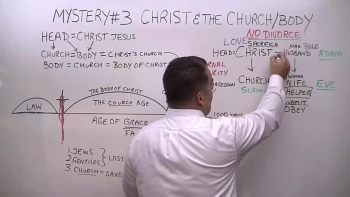 MYSTERY#3 CHRIST & THE CHURCH/BODY
HEAD = CHRIST JESUS
CHURCH = BODY = CHRIST'S CHURCH
BODY = CHURCH = BODY OF CHRIST
NO DIVORCE!
LOVE SACRIFICE
MAN RULE
HEAD= CHRIST = HUSBAND ADAM
CHURCH
WIFE EVE
HELPER
SUBMIT
OBEY
THE BODY OF CHRIST
LAW
THE CHURCH AGE
AGE OF GRACE
1. JEWS
2. GENTILES
LOST
3. CHURCH = SAVED